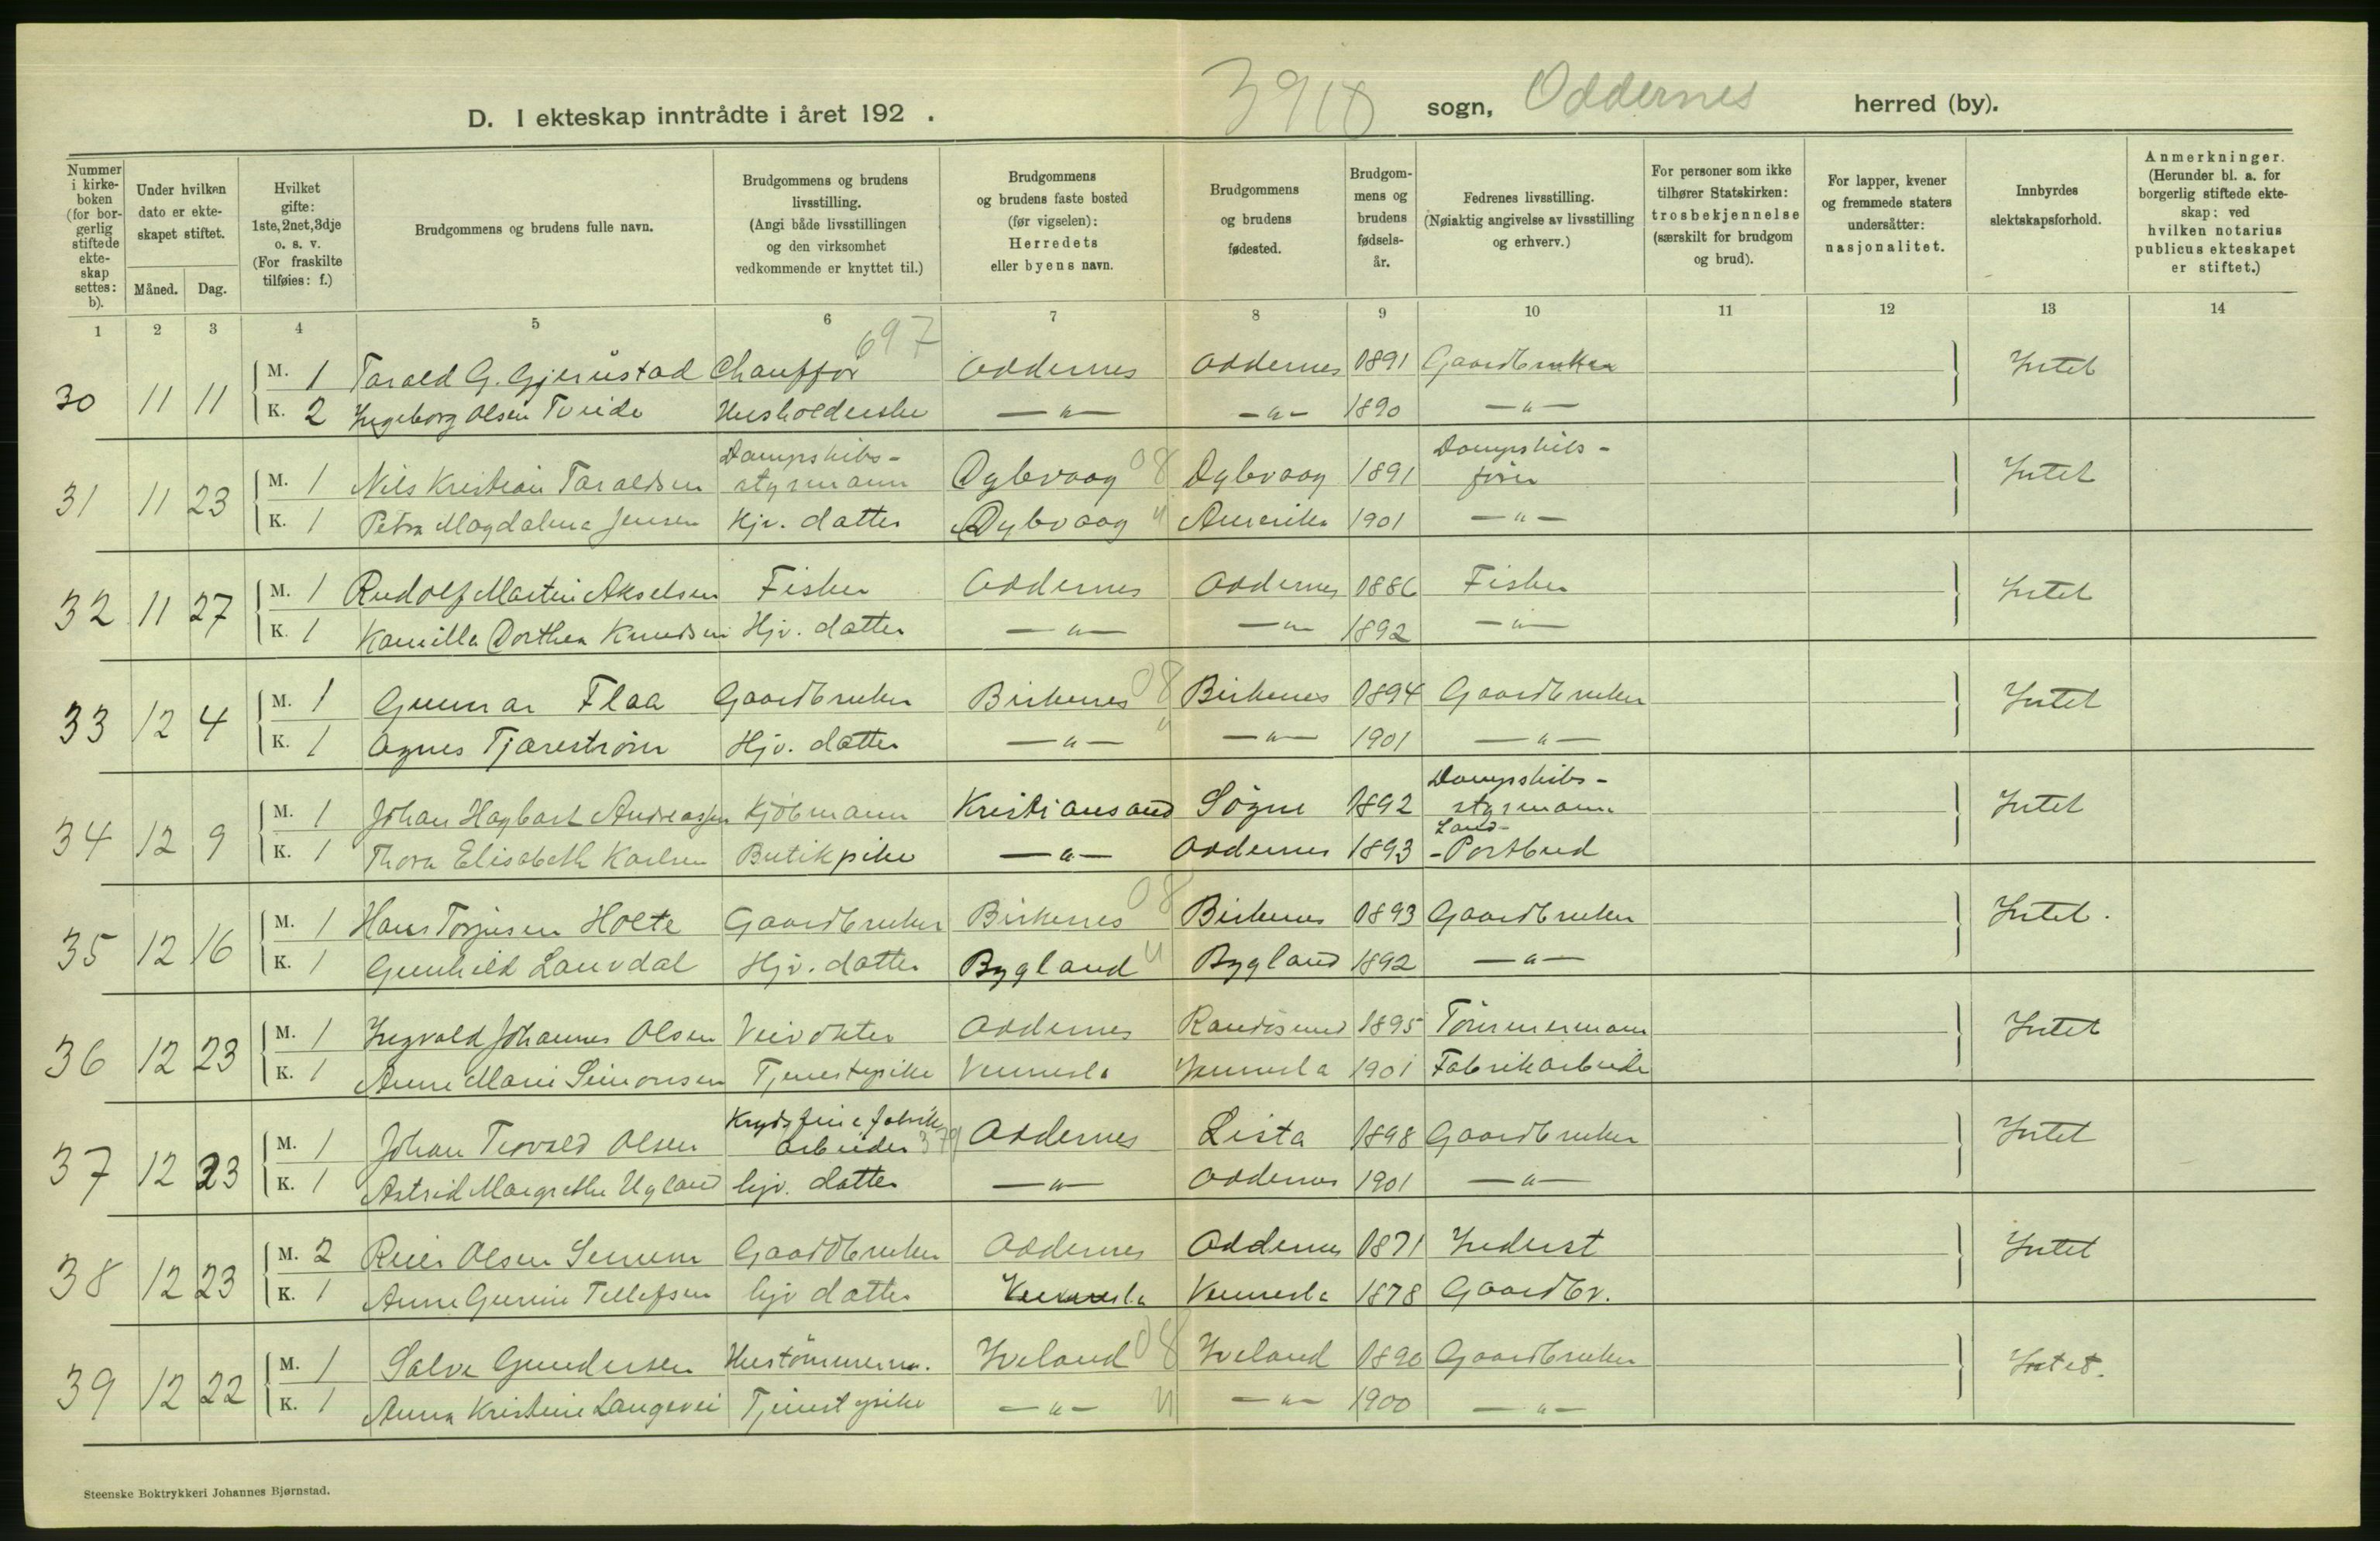 D. I ekteskap inntrådte i året 192 . 3918 sogn, Oddernes herred (by).
Nummer i kirke-boken (for bor-gerlig stiftede ekte-skap settes: b).
Under hvilken dato er ekte-skapet stiftet.
Måned. Dag.
Hvilket gifte: 1ste, 2net, 3dje o. s. v. (For fraskilte tilføies: f.)
Brudgommens og brudens fulle navn.
Brudgommens og brudens livsstilling. (Angi både livsstillingen og den virksomhet vedkommende er knyttet til.)
Brudgommens og brudens faste bosted (før vigselen): Herredets eller byens navn.
Brudgommens og brudens fødested.
Brudgom-mens og brudens fødsels-år.
Fedrenes livsstilling. (Nøiaktig angivelse av livsstilling og erhverv.)
For personer som ikke tilhører Statskirken: trosbekjennelse (særskilt for brudgom og brud).
For lapper, kvener og fremmede staters undersåtter: nasjonalitet.
Innbyrdes slektskapsforhold.
Anmerkninger. (Herunder bl. a. for borgerlig stiftede ekte-skap: ved hvilken notarius publicus ekteskapet er stiftet.)
1 2 3 4 5 6 7 8 9 10 11 12 13 14
697
30 11 11 M. 1 Tarald G. Gjerustad Chauffør Oddernes Oddernes 1891 Gaardbruker Intet
K. 2 Ingeborg Olsen Tveide Husholderske —"— —"— 1890 —"—
Dampskibs- Dampskibs-
31 11 23 M. 1 Nils Kristian Taraldsen styrmann Dybvaag 08 Dybvaag 1891 fører Intet
K. 1 Petra Magdalena Jensen Hjv. datter Dybvaag " Amerika 1901 —"—
32 11 27 M. 1 Rudolf Martin Akselsen Fisker Oddernes Oddernes 1886 Fisker Intet
K. 1 Kamilla Dorthea Knudsen Hjv. datter —"— —"— 1892 —"—
33 12 4 M. 1 Gunnar Flaa Gaardbruker Birkenes 08 Birkenes 1894 Gaardbruker Intet
K. 1 Agnes Tjærestrøm Hjv. datter —"— " —"— 1901 —"—
Dampskibs-
34 12 9 M. 1 Johan Hagbart Andreassen Kjøbmann Kristiansand Søgne 1892 styrmann Intet
Land-
K. 1 Thora Elisabeth Karlsen Butikpike —"— Oddernes 1893 -Postbud
35 12 16 M. 1 Hans Torjusen Holte Gaardbruker Birkenes 08 Birkenes 1893 Gaardbruker Intet.
K. 1 Gunhild Lauvdal Hjv. datter Bygland " Bygland 1892 —"—
36 12 23 M. 1 Ingvald Johannes Olsen Veivokter Oddernes Randøsund 1895 Tømmermann Intet
K. 1 Anne Marie Simonsen Tjenestepike Vennesla Vennesla 1901 Fabrikarbeider
Krydsfiner fabrik
37 12 23 M. 1 Johan Teovald Olsen arbeider 379 Oddernes Lista 1898 Gaardbruker Intet
K. 1 Astrid Margrethe Ugland hjv. datter —"— Oddernes 1901 —"—
38 12 23 M. 2 Reier Olsen Gaardbruker Oddernes Oddernes 1871 Inderst Intet
K. 1 Anne Gurine Tellefsen hjv datter Vennesla Vennesla 1878 Gaardbr.
39 12 22 M. 1 Salve Gundersen Hustømmerm. Iveland 08 Iveland 1890 Gaardbruker Intet.
K. 1 Anna Kristine Langevei Tjenestepike —"— " —"— 1900 —"—
Steenske Boktrykkeri Johannes Bjørnstad.